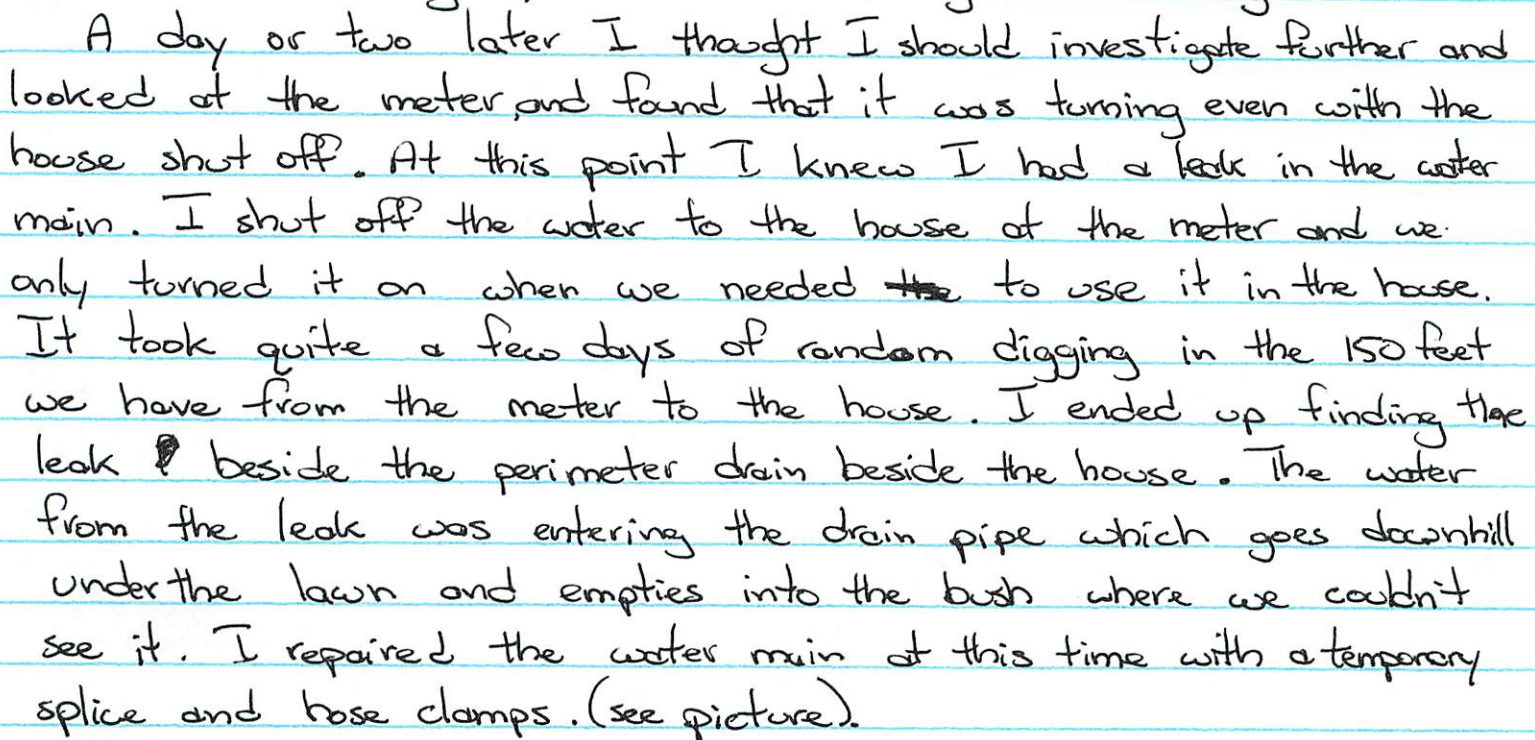 A day or two later I thought I should investigate further and
looked at the meter, and found that it was turning even with the
house shut off. At this point I knew I had a leak in the water
main. I shut off the water to the house at the meter and we
only turned it on when we needed to use it in the house.
It took quite a few days of random digging in the 150 feet
we have from the meter to the house. I ended up finding the
leak beside the perimeter drain beside the house. The water
from the leak was entering the drain pipe which goes downhill
under the lawn and empties into the bush where we couldn't
see it. I repaired the water main at this time with a temporary
splice and hose clamps. (see picture).